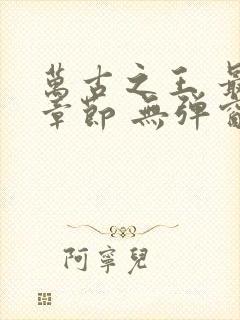 萬古之王 最
章節 無彈窗
阿寧兒